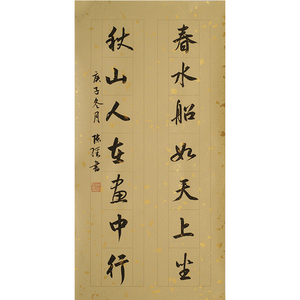 春水船如天上坐
秋山人在画中行
庚子冬月
书